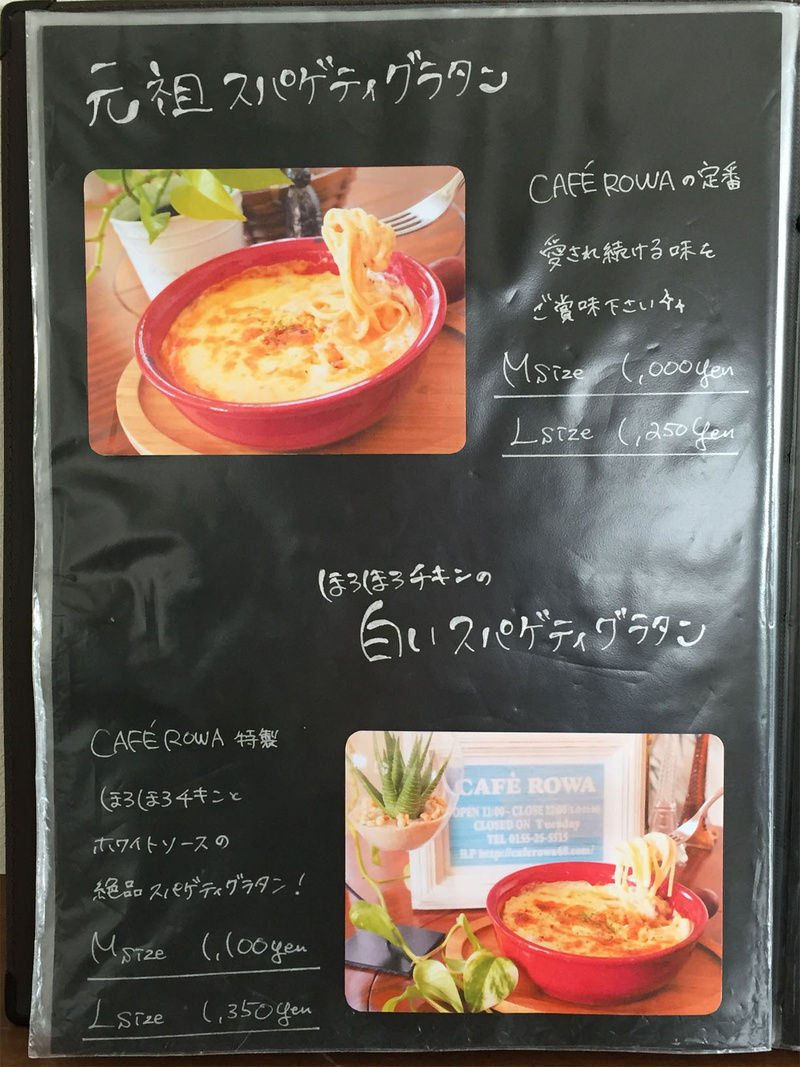 元祖 スパゲティグラタン
CAFÉ ROWAの定番
愛され続ける味を
ご賞味下さい
M size 1,000yen
L size 1,250yen
ほろほろチキンの
白いスパゲティグラタン
CAFÉ ROWA 特製
ほろほろチキンと
ホワイトソースの
絶品スパゲティグラタン!
M size 1,100yen
L size 1,350yen
CAFÉ ROWA
OPEN 11:00 - CLOSE 22:00
CLOSED ON Tuesday
TEL 0155-25-5515
H.P http://caferowa68.com/